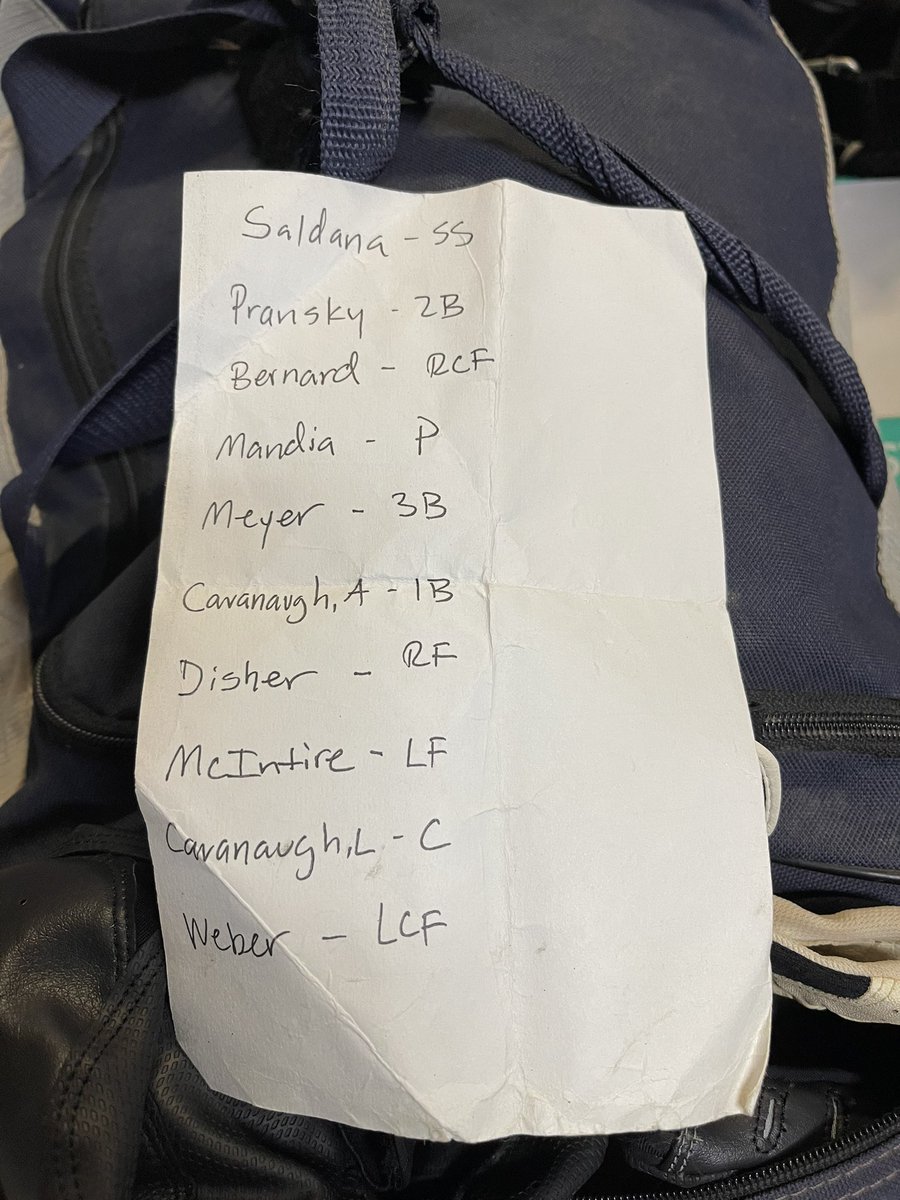 Saldana - SS
Pransky - 2B
Bernard - RCF
Mandia - P
Meyer - 3B
Cavanaugh, A - 1B
Disher - RF
McIntire - LF
Cavanaugh, L - C
Weber - LCF